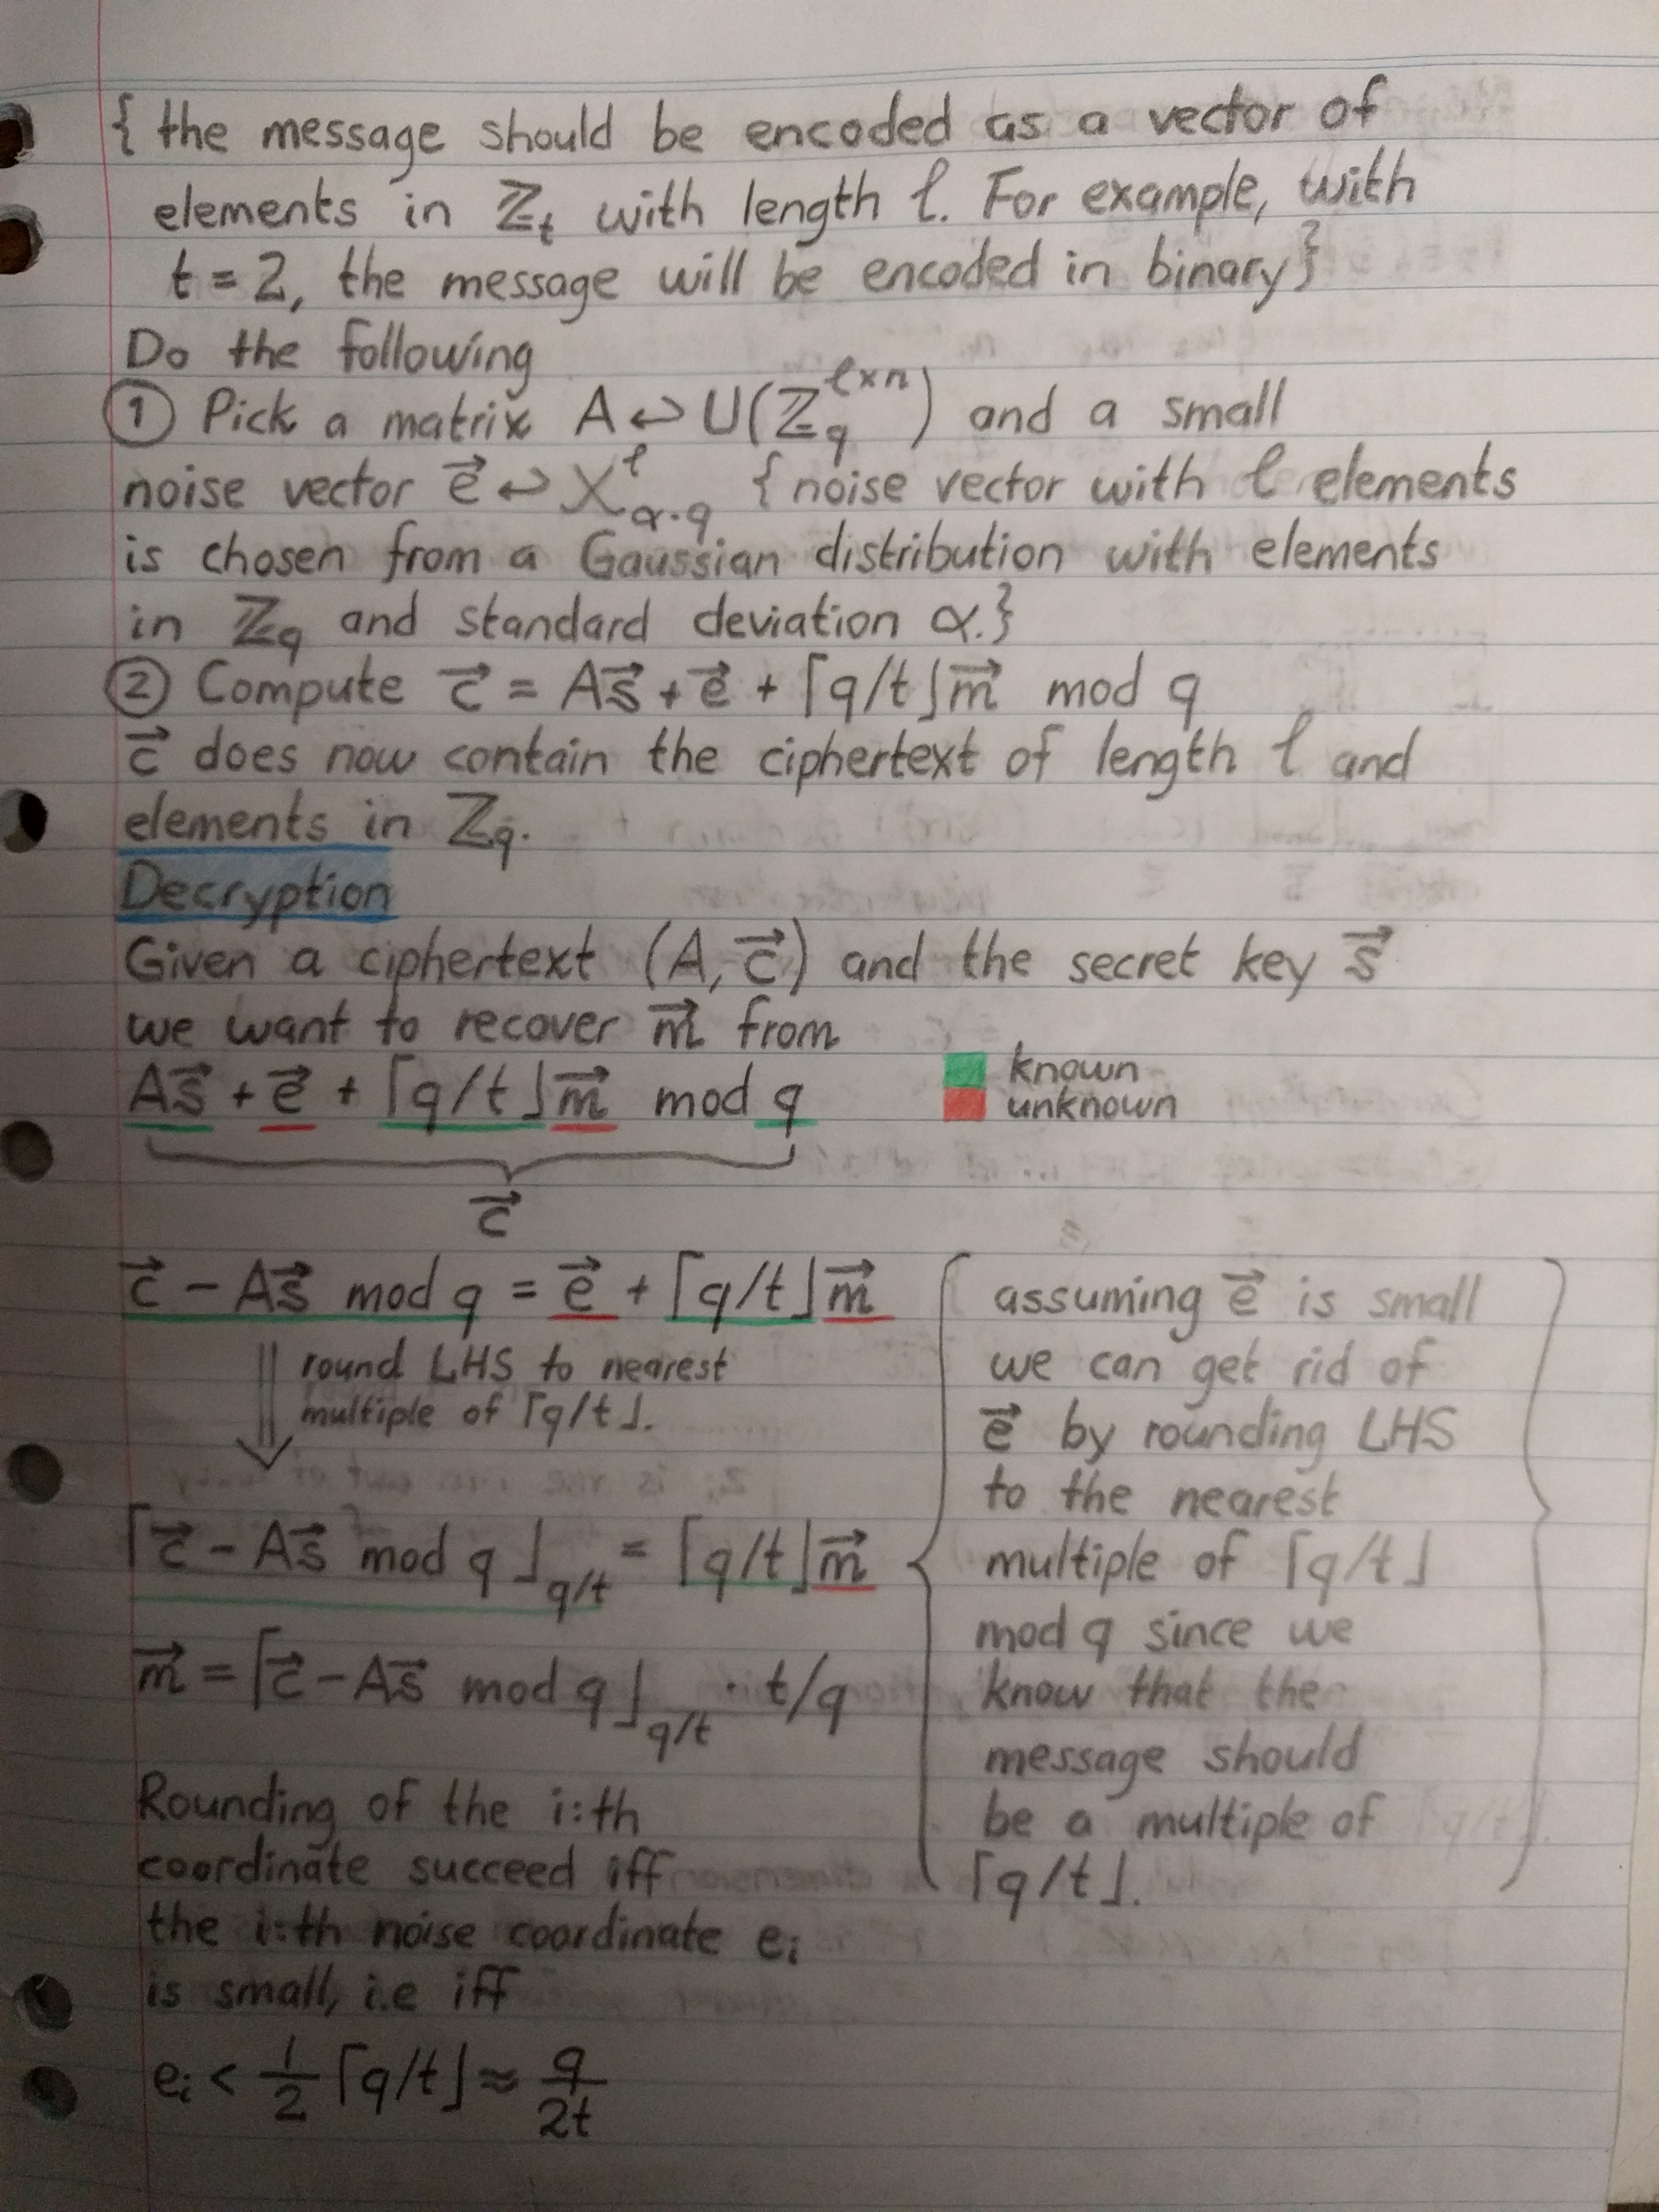 { the message should be encoded as a vector of
elements in ℤ_t with length ℓ. For example, with
t = 2, the message will be encoded in binary}
Do the following
① Pick a matrix A ↩ U(ℤ_q^{ℓ×n}) and a small
noise vector e⃗ ↩ χ^ℓ_{α·q} { noise vector with ℓ elements
is chosen from a Gaussian distribution with elements
in ℤ_q and standard deviation α.}
② Compute c⃗ = As⃗ + e⃗ + ⌈q/t⌋m⃗ mod q
c⃗ does now contain the ciphertext of length ℓ and
elements in ℤ_q.
Decryption
Given a ciphertext (A, c⃗) and the secret key s⃗
we want to recover m⃗ from
As⃗ + e⃗ + ⌈q/t⌋m⃗ mod q
known
unknown
c⃗
c⃗ - As⃗ mod q = e⃗ + ⌈q/t⌋m⃗
round LHS to nearest
multiple of ⌈q/t⌋.
⌈c⃗ - As⃗ mod q⌋_{q/t} = ⌈q/t⌋m⃗
m⃗ = ⌈c⃗ - As⃗ mod q⌋_{q/t} · t/q
assuming e⃗ is small
we can get rid of
e⃗ by rounding LHS
to the nearest
multiple of ⌈q/t⌋
mod q since we
know that the
message should
be a multiple of
⌈q/t⌋.
Rounding of the i:th
coordinate succeed iff
the i:th noise coordinate e_i
is small, i.e iff
e_i < 1/2 ⌈q/t⌋ ≈ q/2t